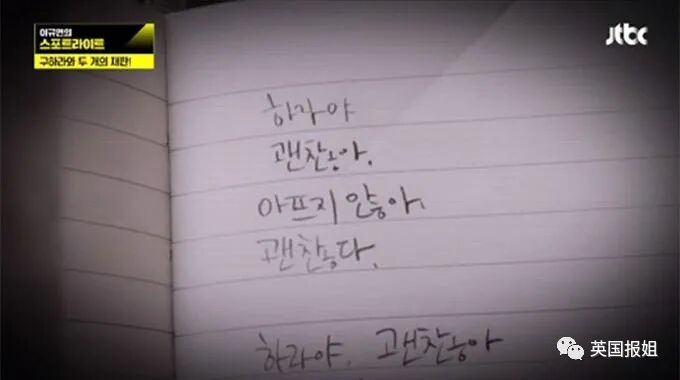 이규연의
스포트라이트
구하라와 두 개의 재판!
jtbc
하라야
괜찮아.
아프지 않아.
괜찮다.
하라야. 괜찮아
英国报姐